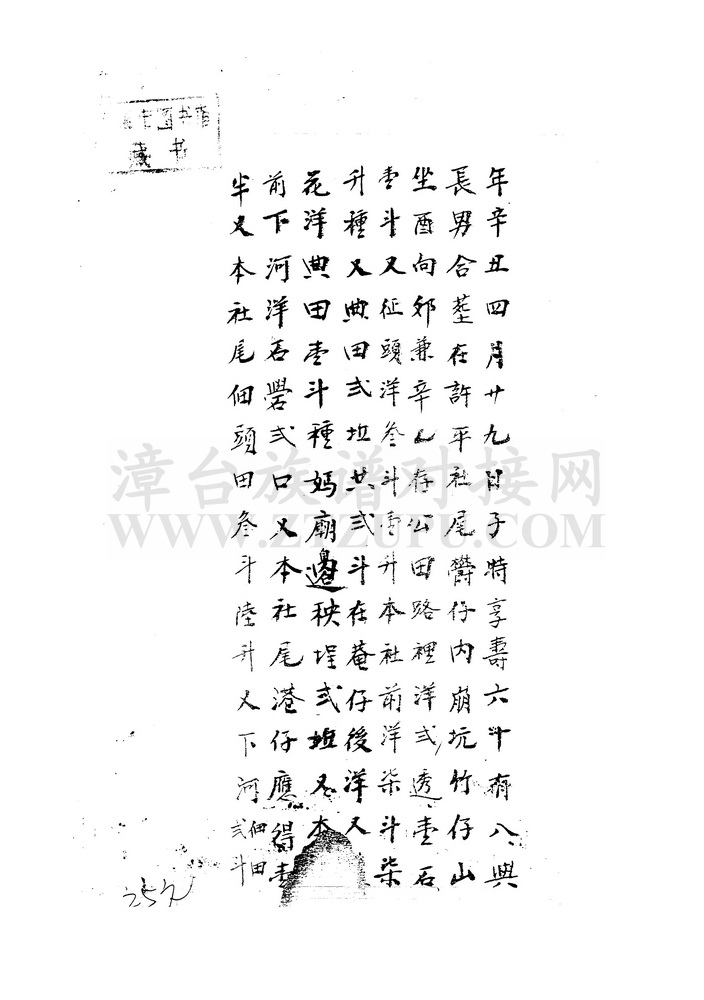 书
藏书
年辛丑四月廿九日子時享壽六十有八與
長男合塟在許平社尾欎仔内崩坑竹仔山
坐酉向卯兼辛乙存公田路裡洋弍透壹石
壹斗又征頭洋叁斗壹升本社前洋柒斗柒
升種又典田弍坵共弍斗在菴仔後洋又
花洋典田壹斗種媽廟邊秧埕弍坵又本
前下河洋石礐弍口又本社尾港仔應得壹
半又本社尾佃頭田叁斗陸升又下河佃田弍斗
漳台族谱对接网
WWW.ZTZUPU.COM